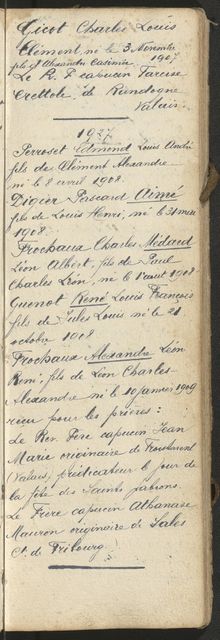 Gicot Charles Louis
Clément, né le 3 Novembre
fils d'Alexandre Casimir. 1907
Le R. P. capucin Tarcise
Crettole de Randogne
Valais.
1927
Perroset Edmond Louis André
fils de Clément Alexandre
né le 8 avril 1908.
Digier Pascard Aimé
fils de Louis Henri, né le 31 mai
1908.
Frochaux Charles Médard
Léon Albert, fils de Paul
Charles Léon, né le 1 août 1908
Quenot René Louis François
fils de Jules Louis né le 21
octobre 1908
Frochaux Alexandre Léon
René, fils de Léon Charles
Alexandre né le 10 janvier 1909
reçu pour les prières :
Le Rév. Père capucin Jean
Marie originaire de
(Valais) prédicateur le jour de
la fête des Saints patrons.
Le Frère capucin Athanase
Mauron originaire de Sales
Ct. de Fribourg.